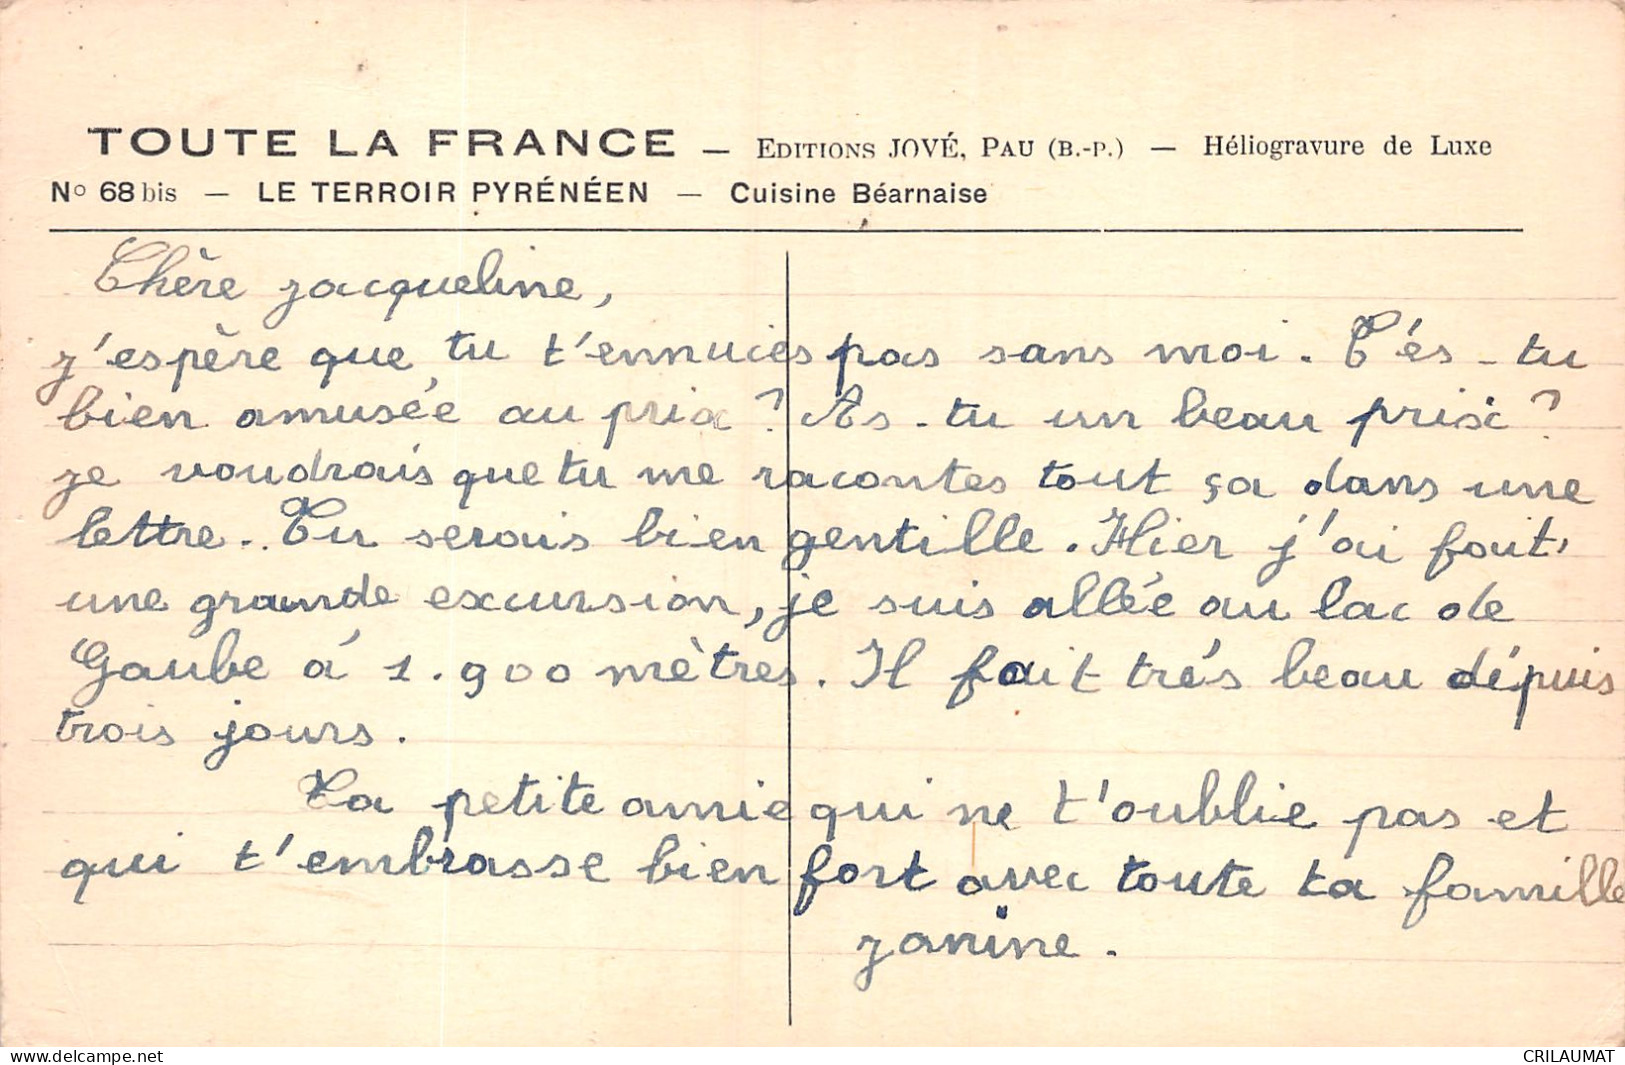 TOUTE LA FRANCE — EDITIONS JOVÉ, PAU (B.-P.) — Héliogravure de Luxe
No 68 bis — LE TERROIR PYRÉNÉEN — Cuisine Béarnaise
Chère jacqueline,
j'espère que tu t'ennuies pas sans moi. T'és-tu
bien amusée au prix ? As-tu un beau prix ?
je voudrais que tu me racontes tout ça dans une
lettre. Tu serais bien gentille. Hier j'ai fait
une grande excursion, je suis allée au lac de
Gaube á 1.900 mètres. Il fait trés beau dépuis
trois jours.
Ta petite amie qui ne t'oublie pas et
qui t'embrasse bien fort avec toute ta famille
janine.
delcampe.net
CRILAUMAT